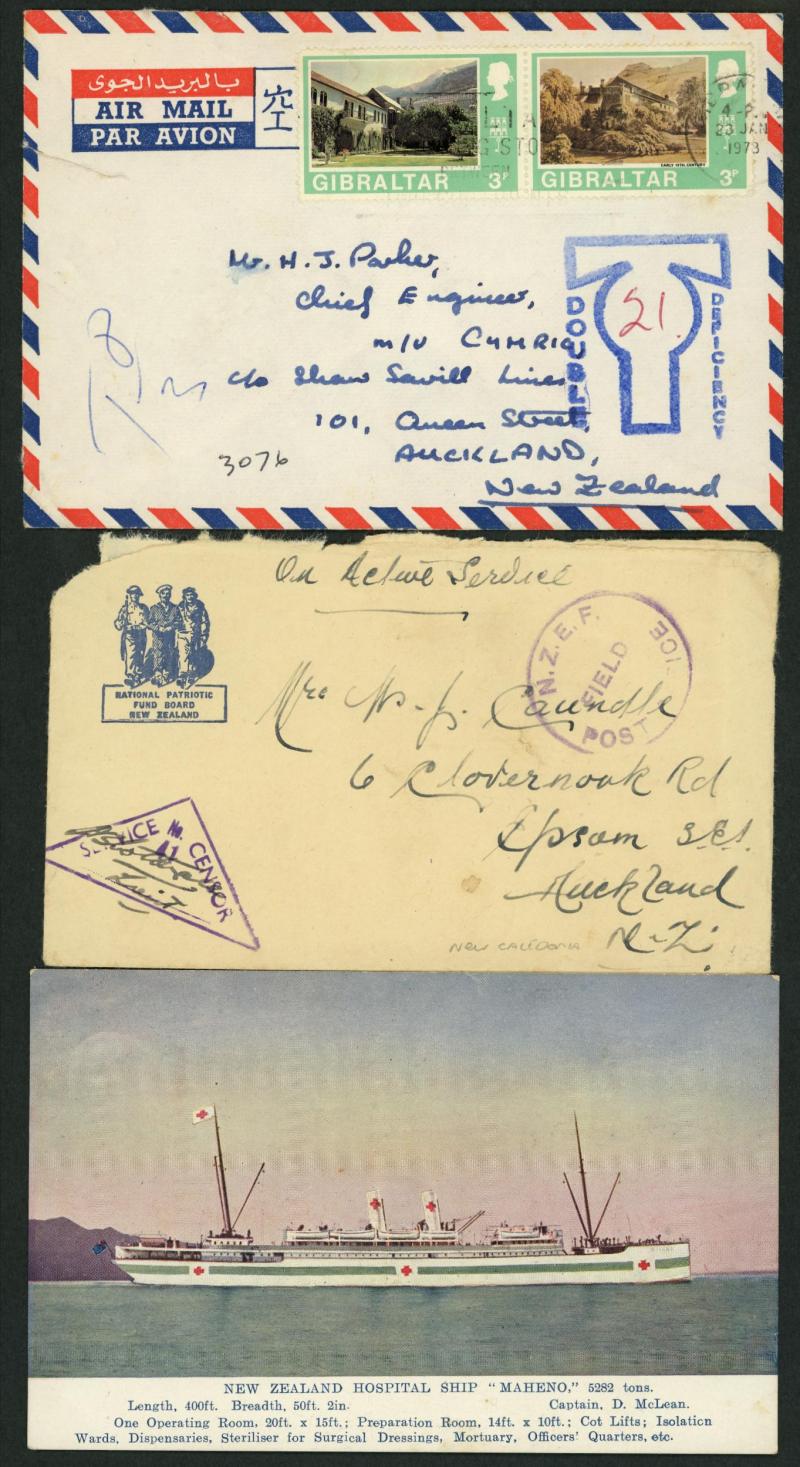 بالبريد الجوى
AIR MAIL
PAR AVION
空
GIBRALTAR 3P
EARLY 19TH CENTURY
GIBRALTAR 3P
4-P
23 JAN
1973
Mr. H. J. Parker,
Chief Engineer,
m/v CYMRIC
c/o Shaw Savill Lines
101, Queen Street,
AUCKLAND,
New Zealand
DOUBLE
21.
DEFICIENCY
3076
On Active Service
NATIONAL PATRIOTIC
FUND BOARD
NEW ZEALAND
N.Z.E.F.
FIELD
POST
ICE
Caundle
6 Clovernook Rd
Epsom S.E.1.
Auckland
N.Z.
SERVICE No. CENSOR
41
NEW CALEDONIA
NEW ZEALAND HOSPITAL SHIP "MAHENO," 5282 tons.
Length, 400ft. Breadth, 50ft. 2in. Captain, D. McLean.
One Operating Room, 20ft. x 15ft.; Preparation Room, 14ft. x 10ft.; Cot Lifts; Isolation
Wards, Dispensaries, Steriliser for Surgical Dressings, Mortuary, Officers' Quarters, etc.